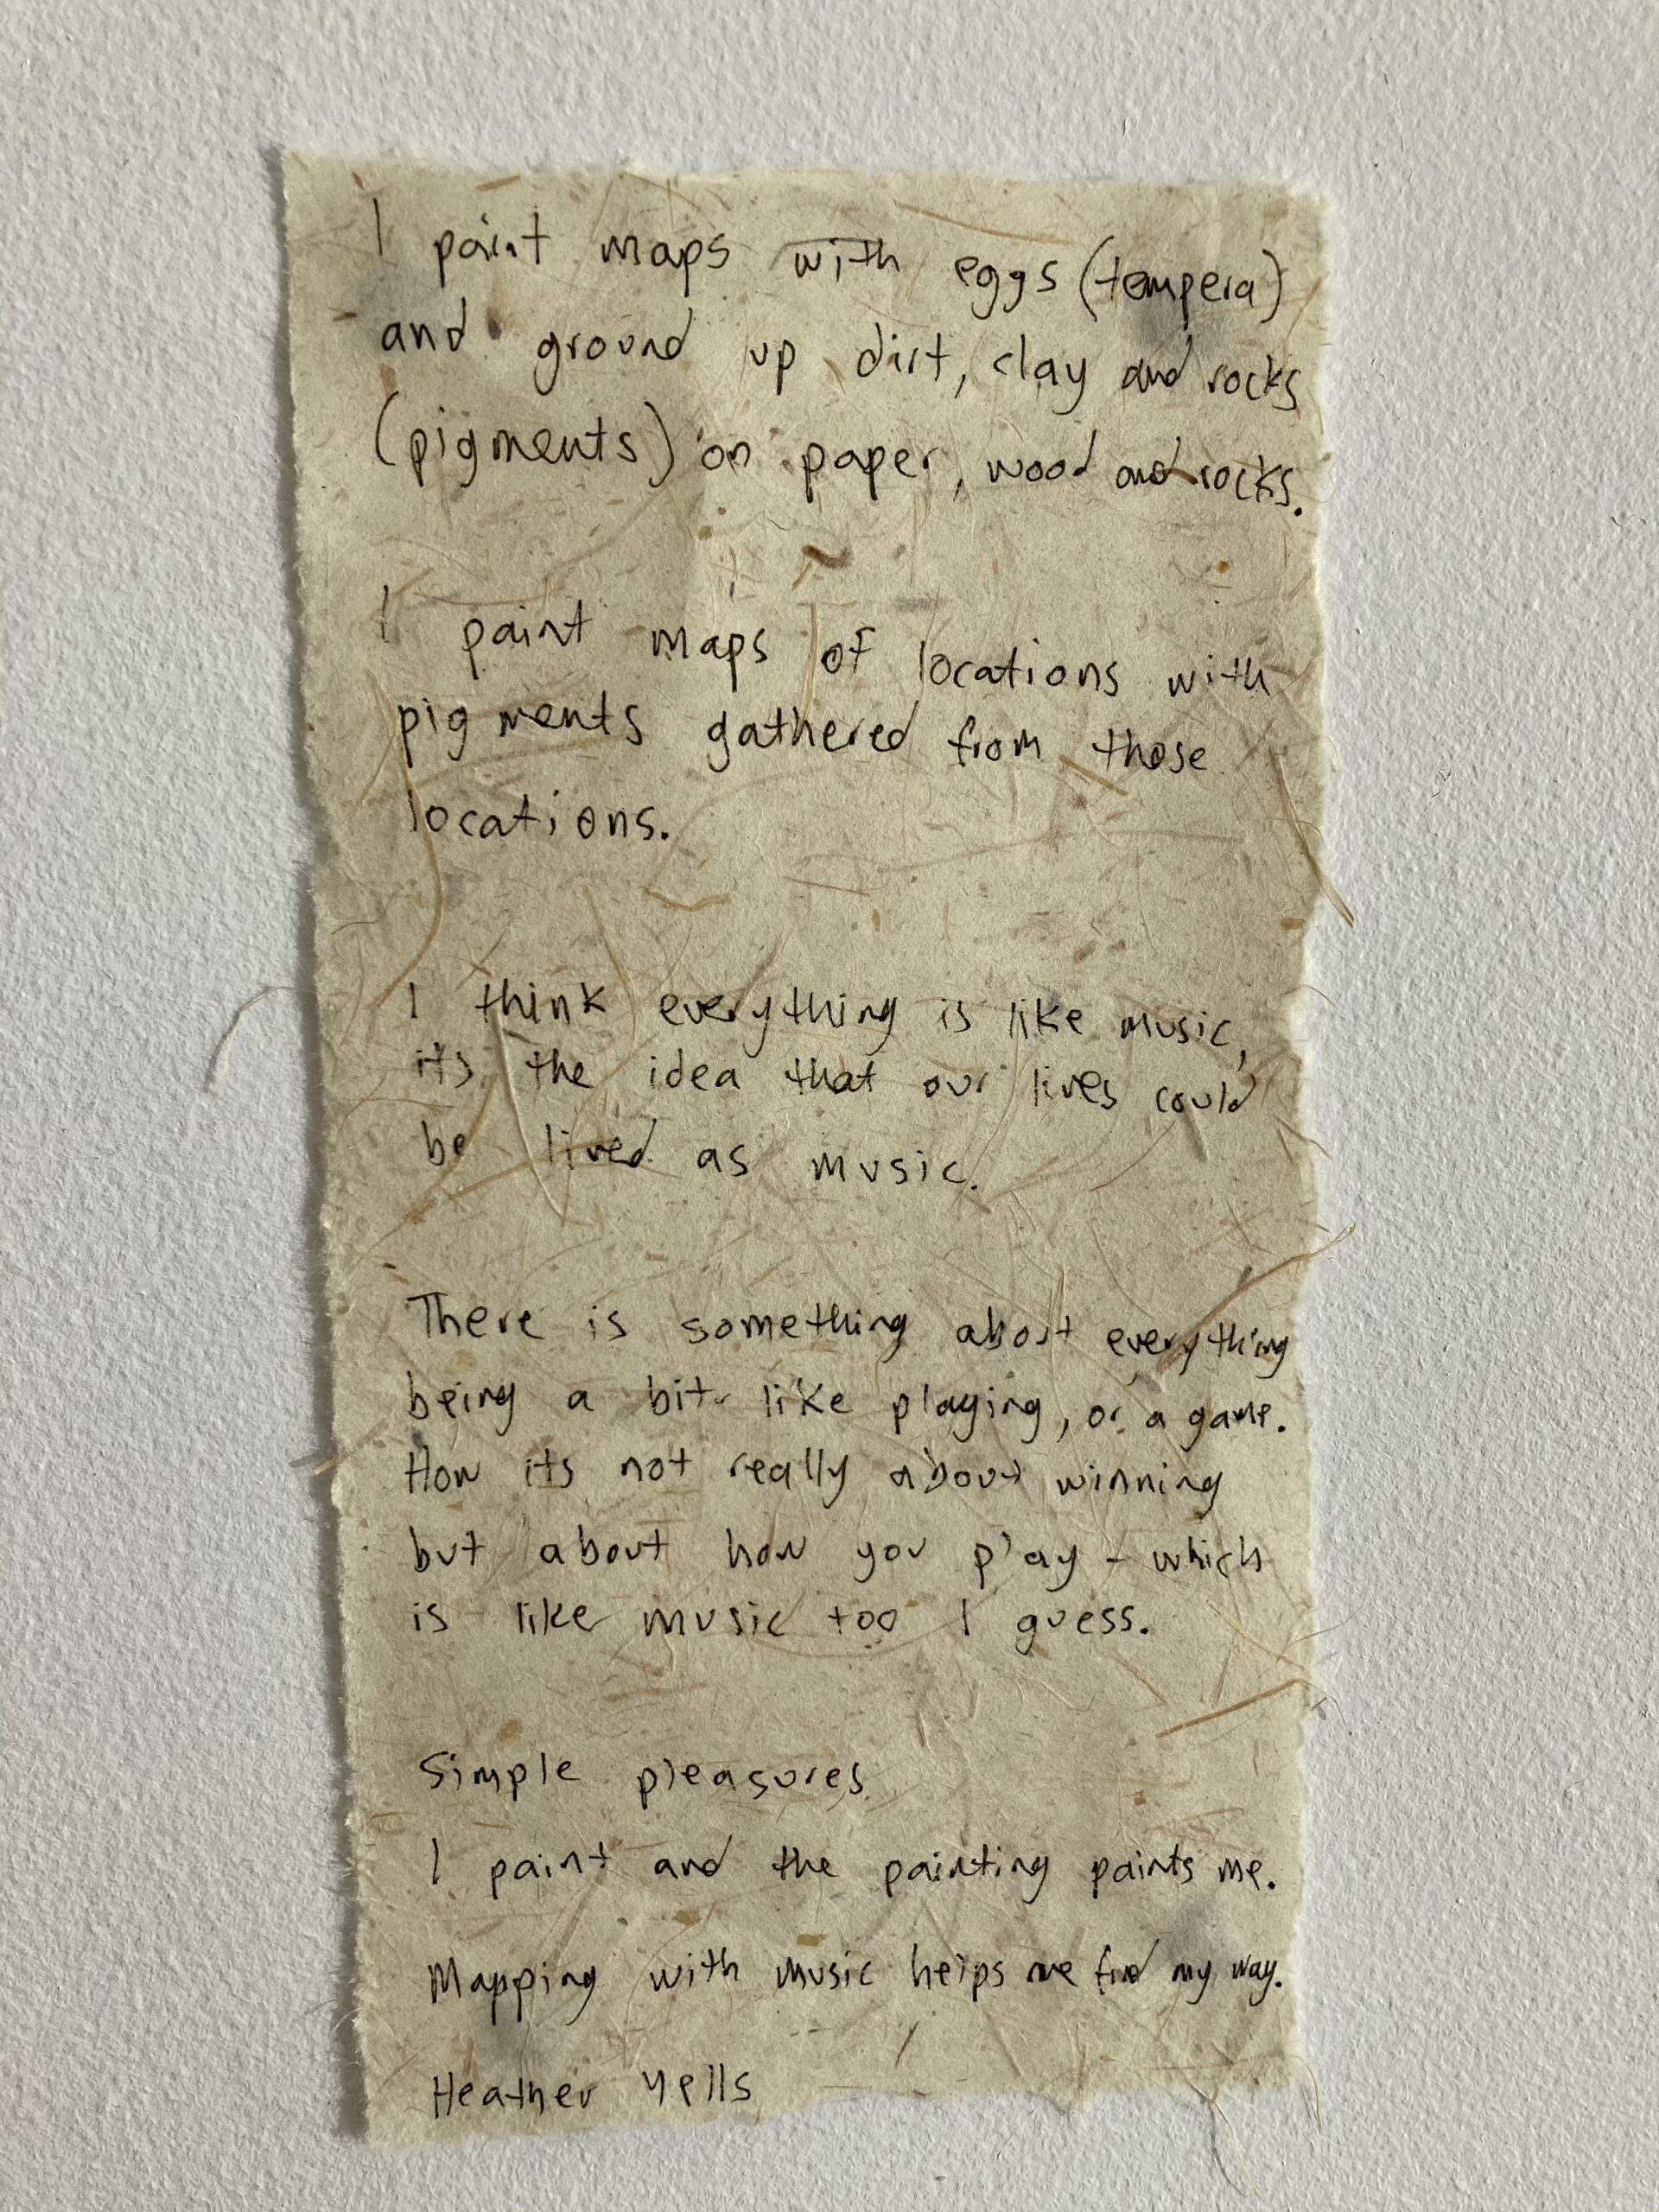 I paint maps with eggs (tempera)
and ground up dirt, clay and rocks
(pigments) on paper, wood and rocks.
I paint maps of locations with
pigments gathered from those
locations.
I think everything is like music,
its the idea that our lives could
be lived as music.
There is something about everything
being a bit like playing, or a game.
How its not really about winning
but about how you play - which
is like music too I guess.
Simple pleasures
I paint and the painting paints me.
Mapping with music helps me find my way.
Heather Yells